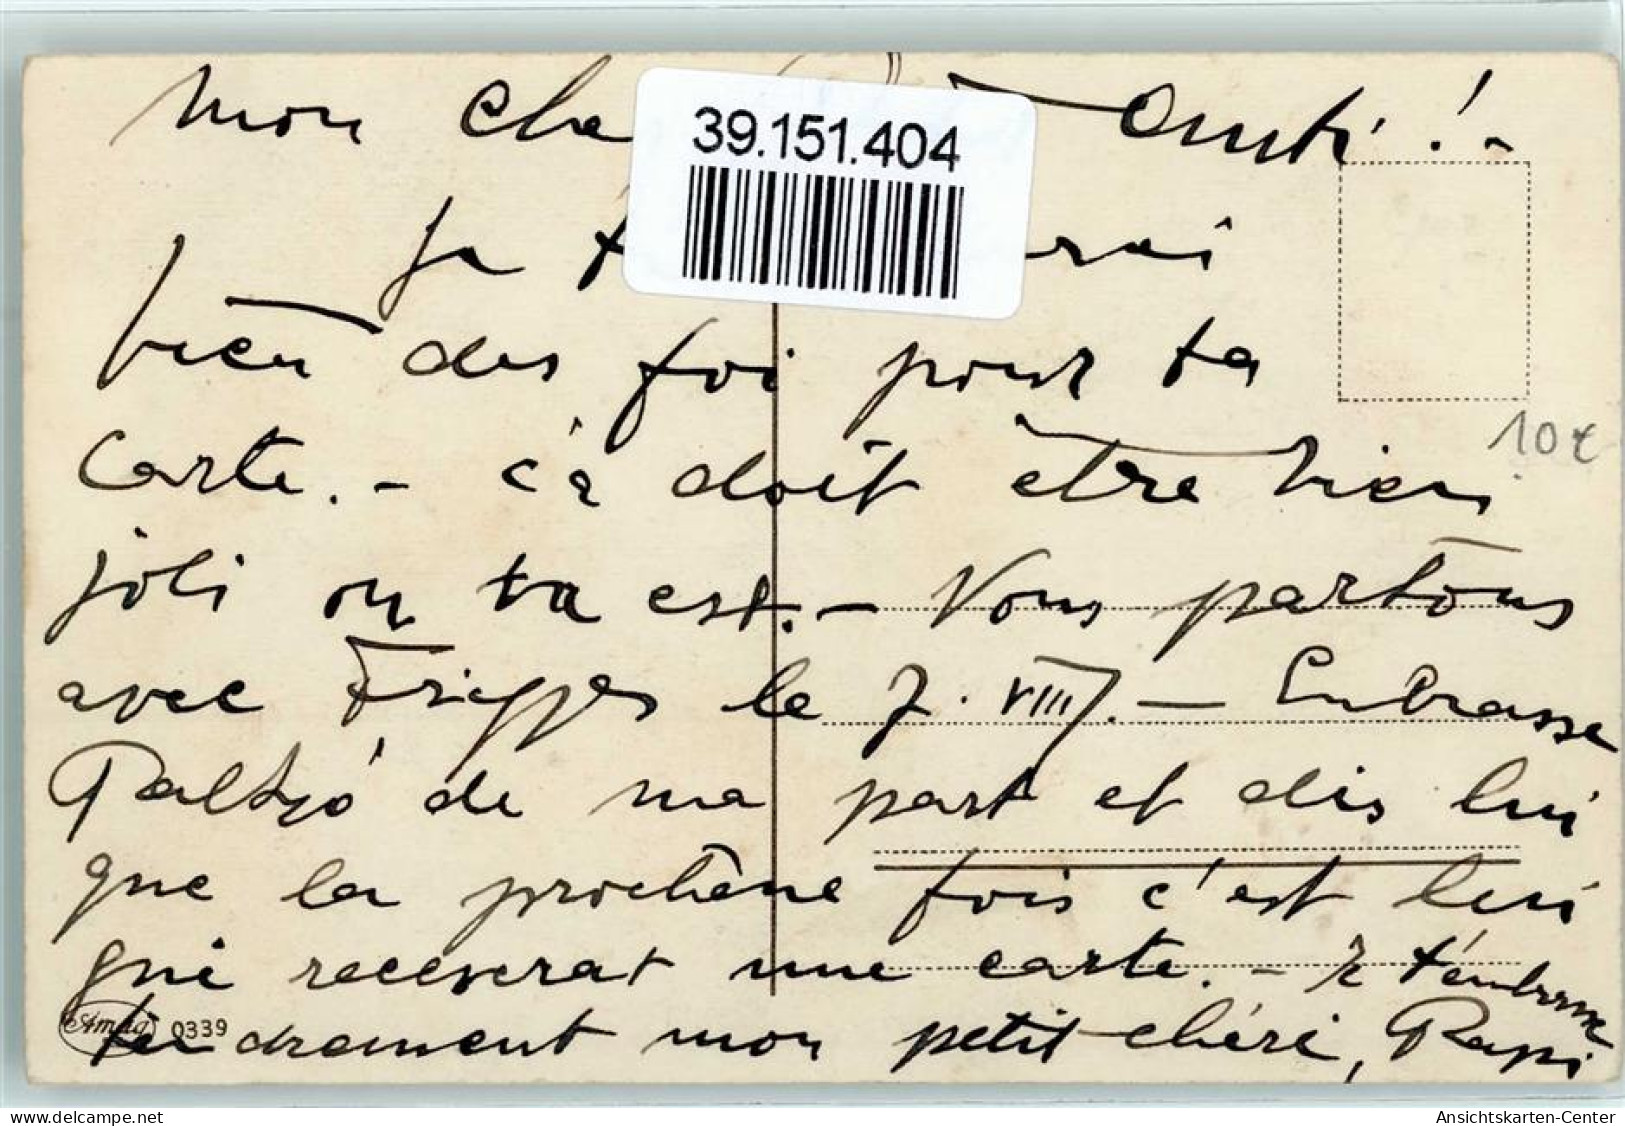 Mon che
39.151.404
bien des foi pour ta
carte. - ċa doit être bien
joli ou ta est. - Nous partons
avec le 7. VIII. - Embrasse
de ma part et dis lui
que la prochêne fois c'est lui
qui receverat une carte. - Je t'embrasse
tendrement mon petit chéri, Papi
10 €
Amag 0339
delcampe.net
Ansichtskarten-Center